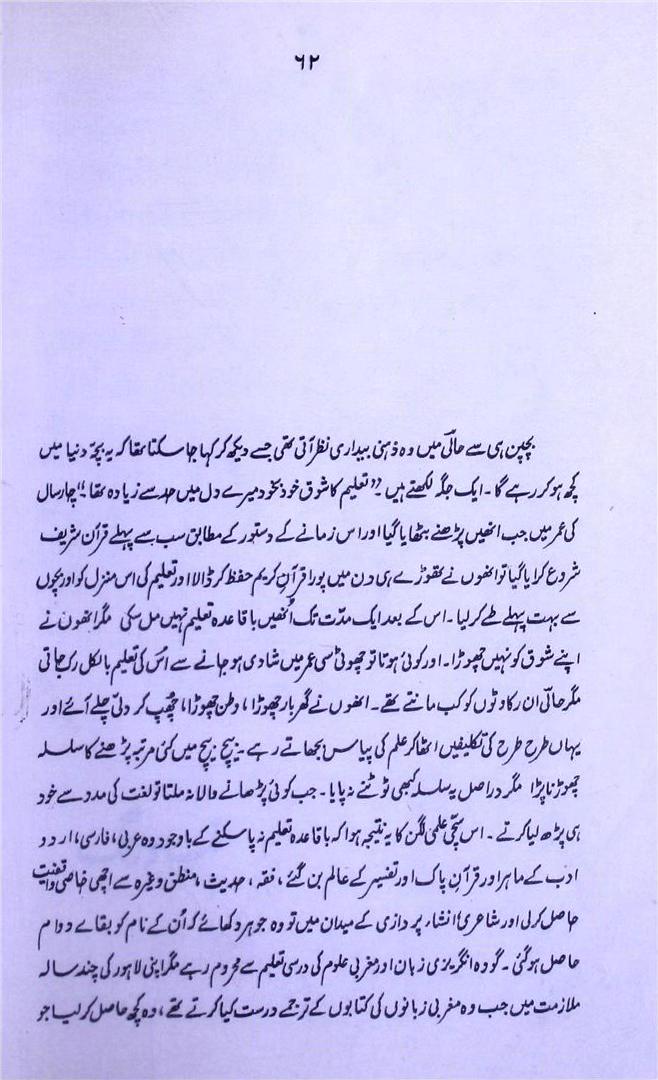 ۶۲
بچپن ہی سے حالیؔ میں وہ ذہنی بیداری نظر آتی تھی جسے دیکھ کر کہا جا سکتا تھا کہ یہ بچہ دنیا میں
کچھ ہو کر رہے گا۔ ایک جگہ لکھتے ہیں۔ "تعلیم کا شوق خود بخود میرے دل میں حد سے زیادہ تھا۔" چار سال
کی عمر میں جب انھیں پڑھنے بٹھایا گیا اور اس زمانے کے دستور کے مطابق سب سے پہلے قرآن شریف
شروع کرایا گیا تو انھوں نے تھوڑے ہی دن میں پورا قرآنِ کریم حفظ کر ڈالا اور تعلیم کی اس منزل کو اور بچوں
سے بہت پہلے طے کر لیا۔ اس کے بعد ایک مدّت تک اُنھیں باقاعدہ تعلیم نہیں مل سکی مگر انھوں نے
اپنے شوق کو نہیں چھوڑا۔ اور کوئی ہوتا تو چھوٹی سی عمر میں شادی ہو جانے سے اس کی تعلیم بالکل رک جاتی
مگر حالیؔ ان رکاوٹوں کو کب مانتے تھے۔ انھوں نے گھر بار چھوڑا، وطن چھوڑا، چھُپ کر دلّی چلے آئے اور
یہاں طرح طرح کی تکلیفیں اٹھا کر علم کی پیاس بجھاتے رہے۔ بیچ بیچ میں کئی مرتبہ پڑھنے کا سلسلہ
چھوڑنا پڑا مگر دراصل یہ سلسلہ کبھی ٹوٹنے نہ پایا۔ جب کوئی پڑھانے والا نہ ملتا تو لغت کی مدد سے خود
ہی پڑھ لیا کرتے۔ اس سچّی علمی لگن کا یہ نتیجہ ہوا کہ باقاعدہ تعلیم نہ پا سکنے کے باوجود وہ عربی، فارسی، اردو
ادب کے ماہر اور قرآنِ پاک اور تفسیر کے عالم بن گئے، فقہ، حدیث، منطق وغیرہ سے اچھی خاصی واقفیت
حاصل کرلی اور شاعری، انشاء پردازی کے میدان میں تو وہ جوہر دکھائے کہ اُن کے نام کو بقائے دوام
حاصل ہو گئی۔ گو وہ انگریزی زبان اور مغربی علوم کی درسی تعلیم سے محروم رہے مگر اپنی لاہور کی چند سالہ
ملازمت میں جب وہ مغربی زبانوں کی کتابوں کے ترجمے درست کیا کرتے تھے، وہ کچھ حاصل کر لیا جو